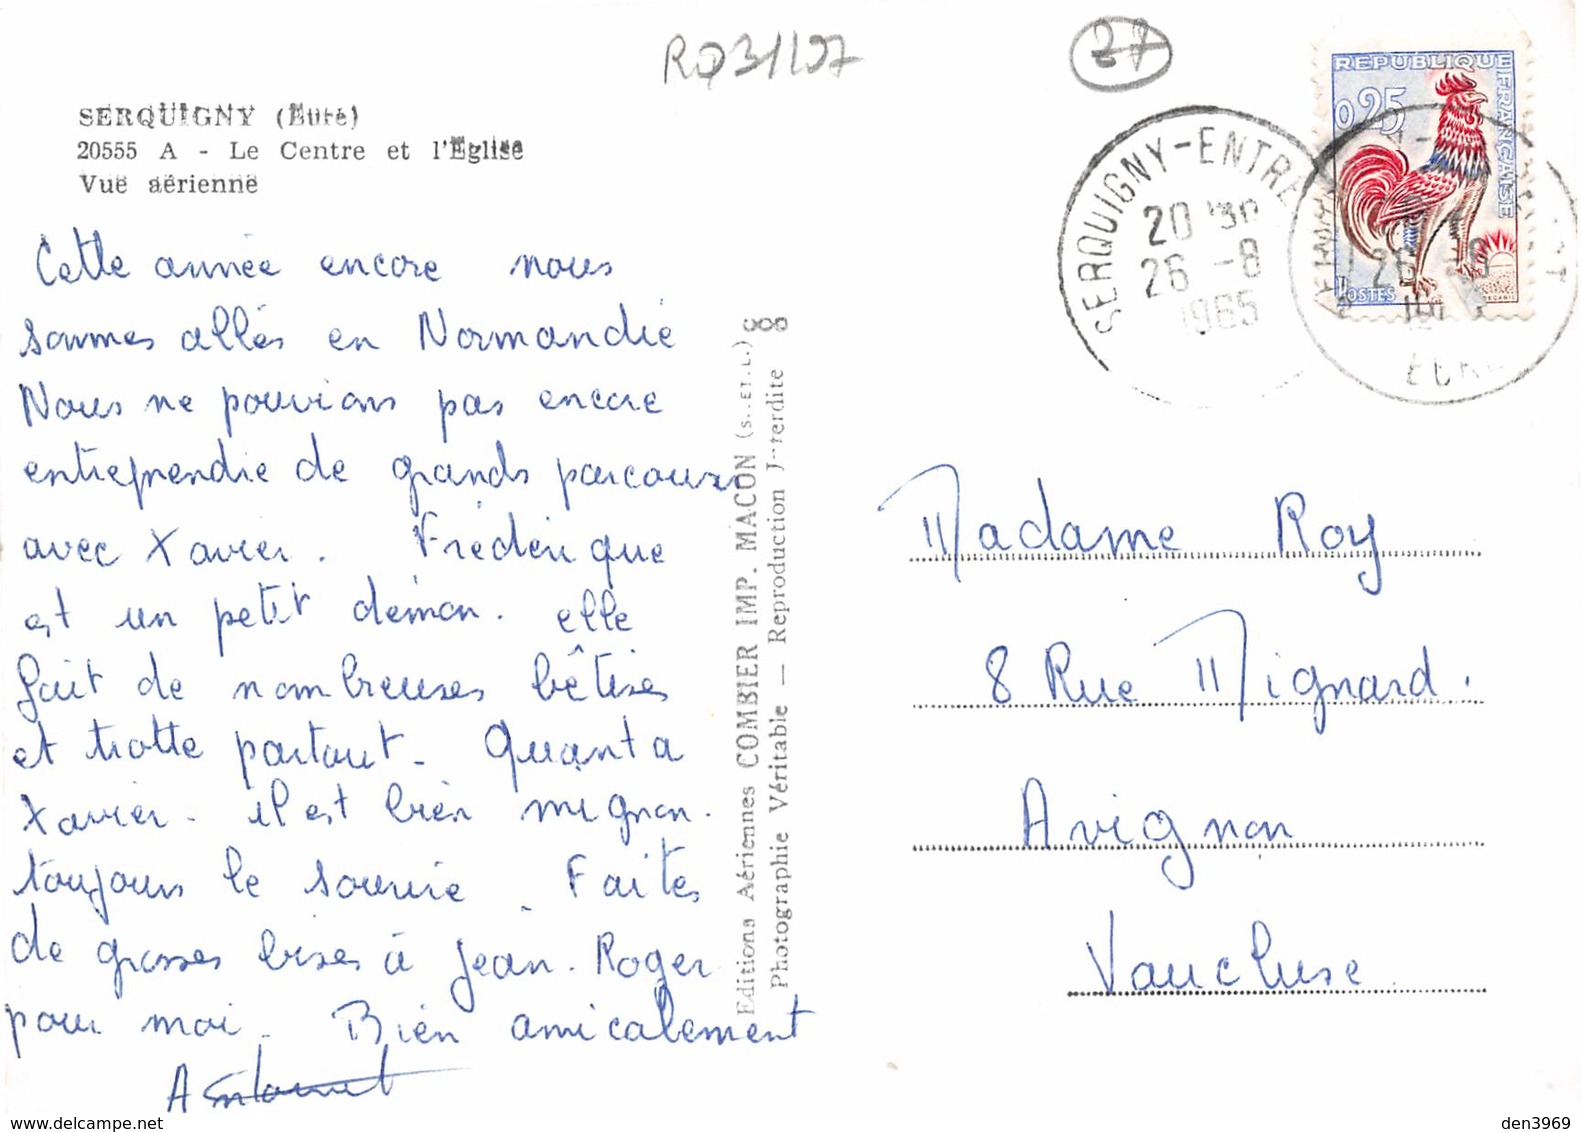 RQ31/197
27
SERQUIGNY (Eure)
20555 A - Le Centre et l'Eglise
Vue aérienne
Cette année encore nous
sommes allés en Normandie
Nous ne pouvions pas encore
entreprendre de grands parcours
avec Xavier. Frédérique
est un petit démon. elle
fait de nombreuses bêtises
et trotte partout. Quant a
Xavier. il est bien mignon.
toujours le sourire. Faites
de grosses bises à Jean-Roger
pour moi. Bien amicalement
Editions Aériennes COMBIER IMP. MACON (S.-ET-L.)
Photographie Véritable — Reproduction Interdite
REPUBLIQUE
FRANÇAISE
0,25
POSTES
DECARIS
SERQUIGNY-ENTRA
20 H30
26 -8
1965
Madame Roy
8 Rue Mignard.
Avignon
Vaucluse
den3969